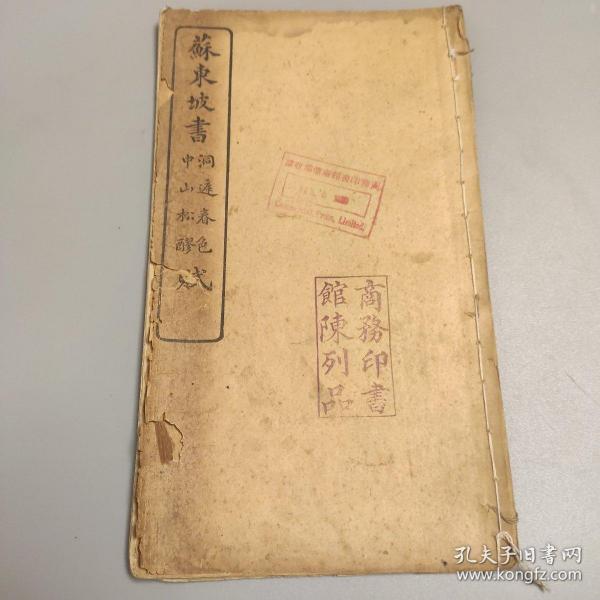 蘇東坡書
洞庭春色
中山松醪
賦
商務印書
館陳列品
Commercial Press, Limited.
孔夫子旧书网
www.kongfz.com